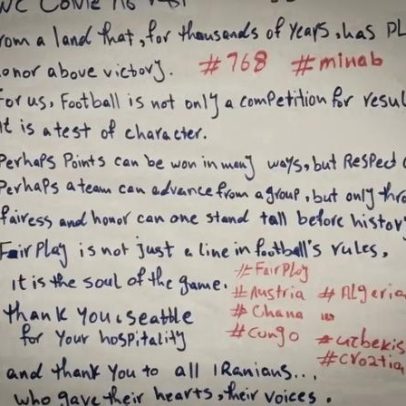 WE COME
rom a land that, for thousands of years, has PL
onor above victory. #768 #minab
For us, Football is not only a competition for resul
It is a test of character.
Perhaps Points can be won in many ways, but Respect
Perhaps a team can advance from a group, but only thro
fairess and honor can one stand tall before histor
Fair Play is not just a line in football's rules,
it is the soul of the game. #FairPlay
#Austria #Algeria
thank You, seattle #Ghana
for your hospitality #Congo #uzbekis
#Croatia
and thank You to all IRanians...
who gave their hearts, their voices.